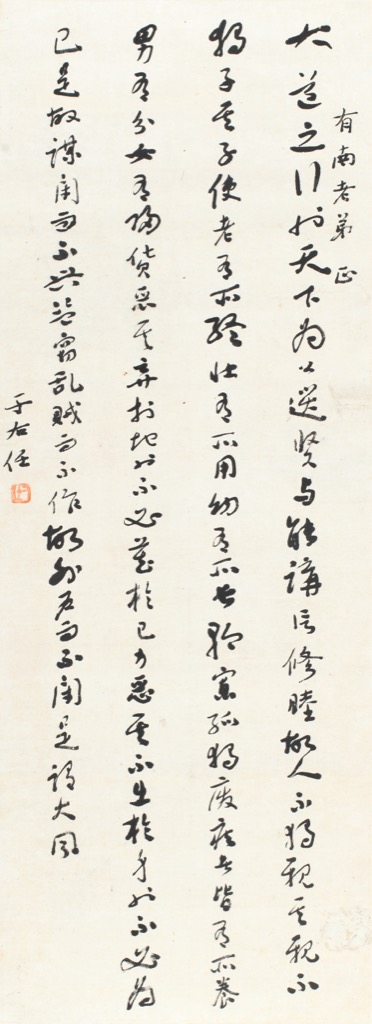 有南老弟正
大道之行也天下为公選賢与能講信修睦故人不獨親其親不
獨子其子使老有所終壯有所用幼有所長矜寡孤獨廢疾者皆有所養
男有分女有歸貨惡其棄於地也不必藏於己力惡其不出於身也不必为
己是故謀閉而不興盜竊亂賊而不作故外户而不閉是謂大同
于右任